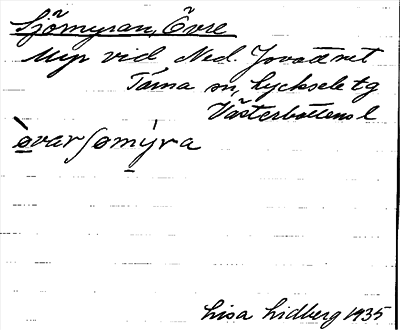 Sjömyran, Övre
Myr vid Ned. Jovattnet
Tärna sn, Lycksele tg
Västerbottens l
òvar sømýra
Lisa Lidberg 1935